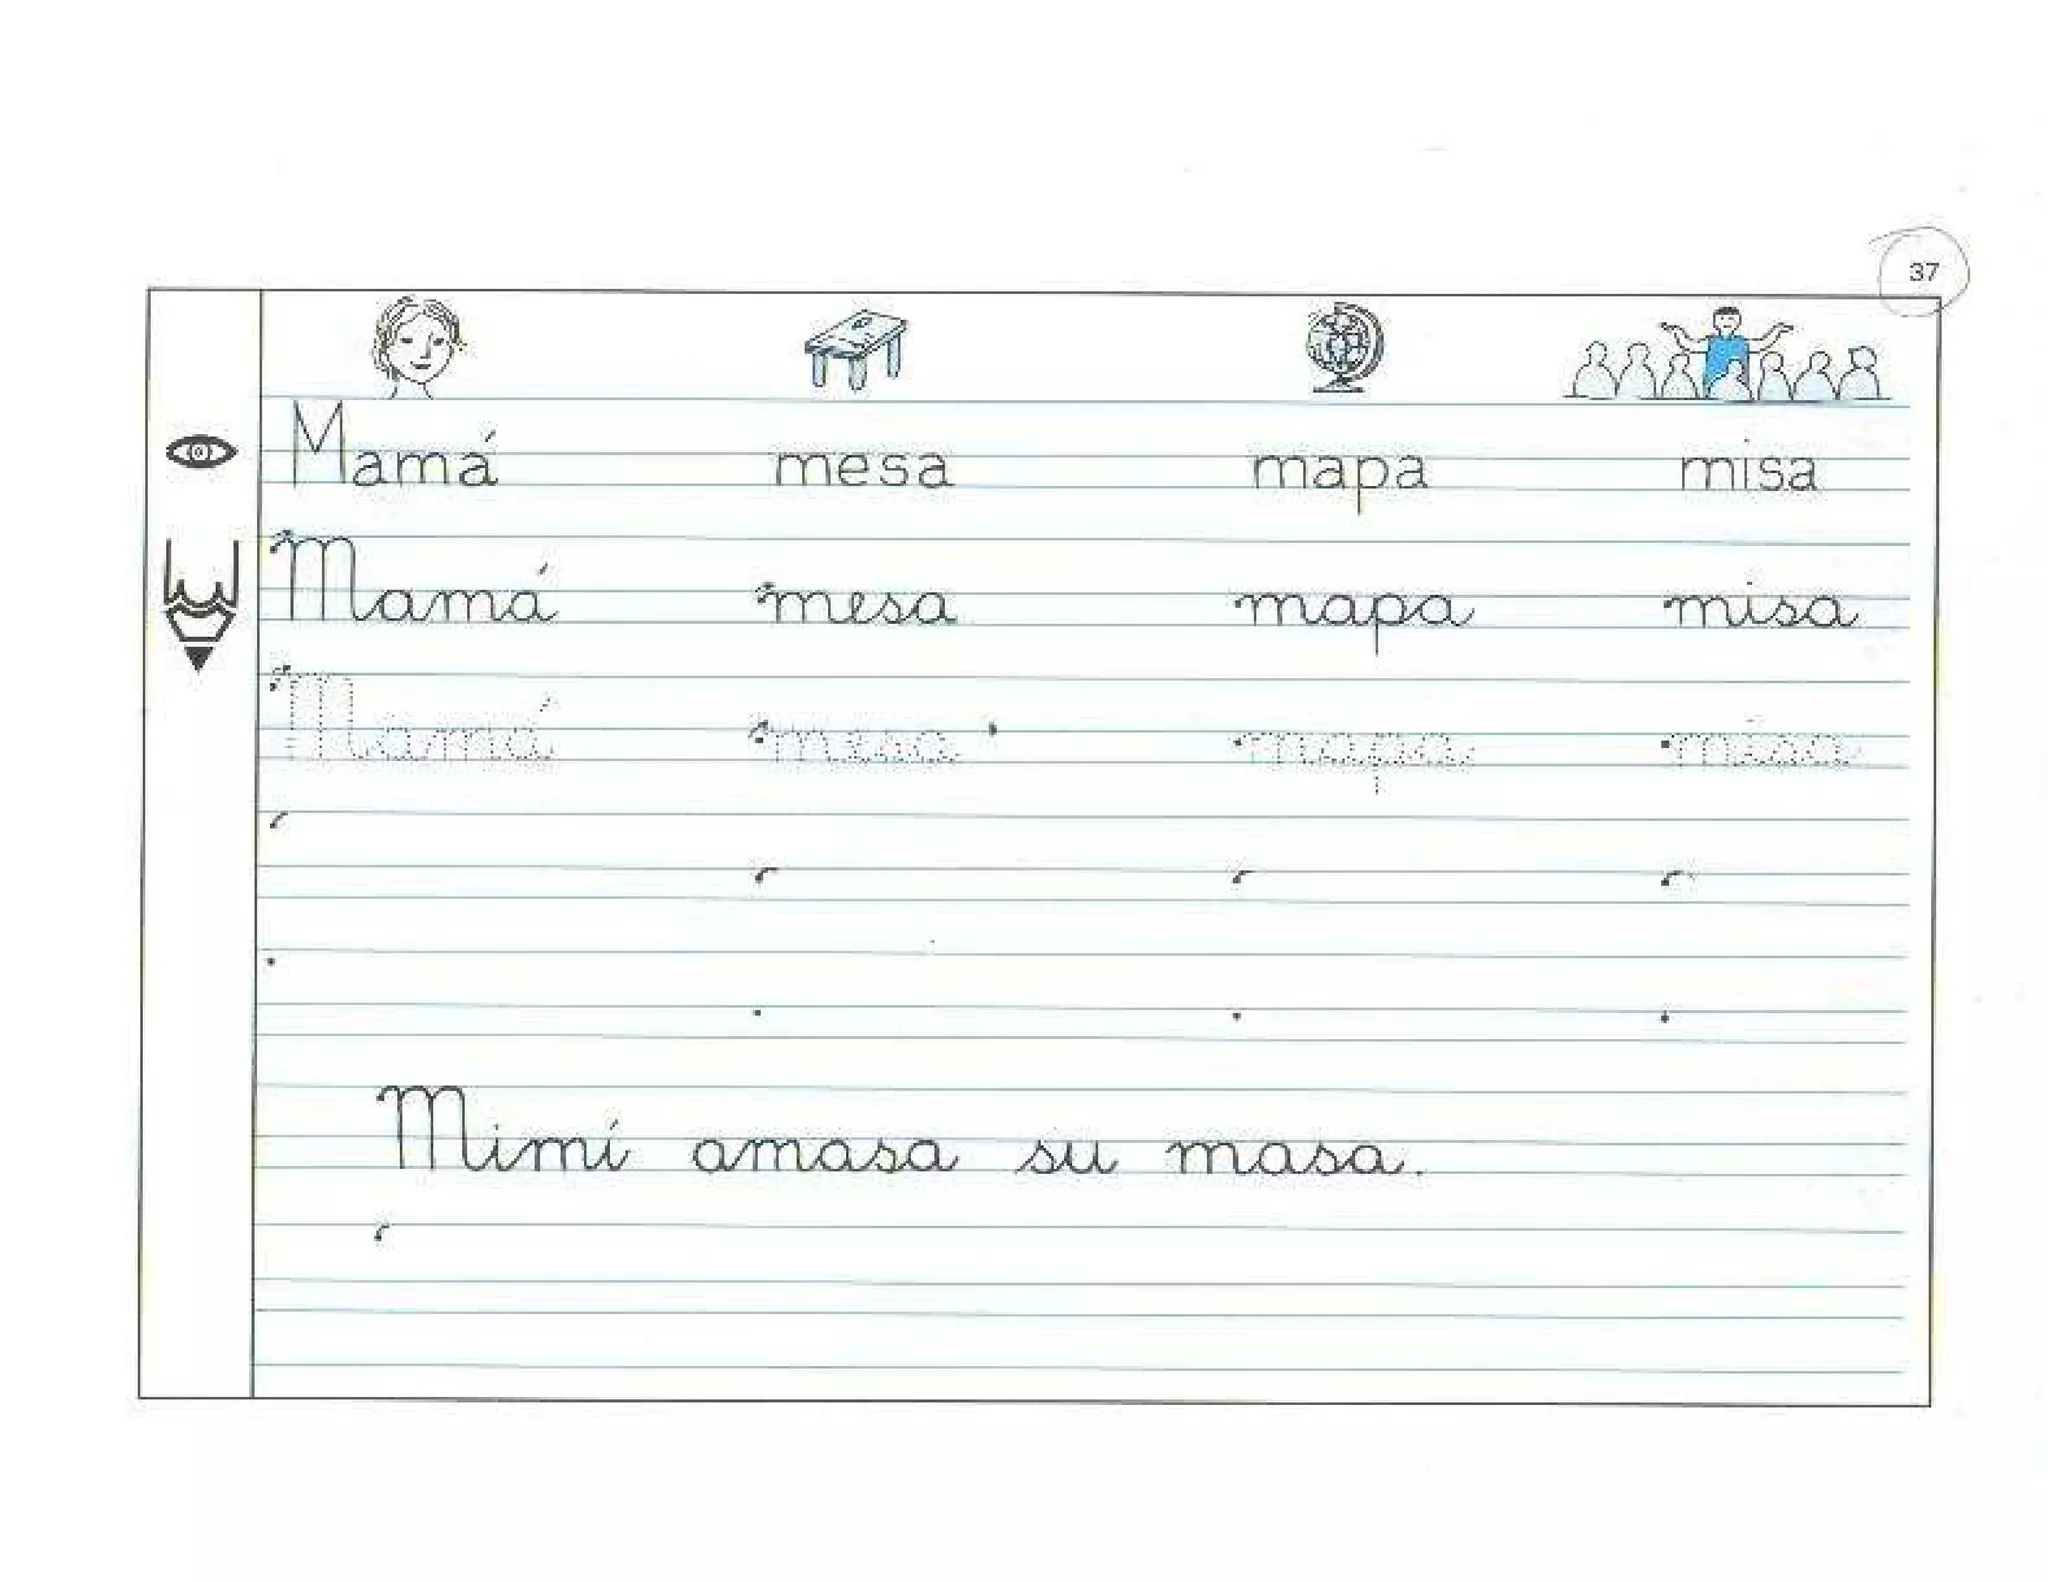 37
Mamá mesa mapa misa
Mamá mesa mapa misa
Mamá mesa mapa misa
Mimí amasa su masa.